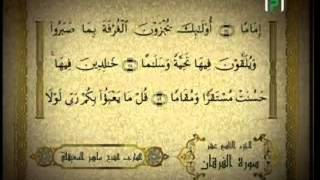 إِمَامًا ۝ أُوْلَٰٓئِكَ يُجْزَوْنَ ٱلْغُرْفَةَ بِمَا صَبَرُوا۟
وَيُلَقَّوْنَ فِيهَا تَحِيَّةً وَسَلَٰمًا ۝ خَٰلِدِينَ فِيهَا ۚ
حَسُنَتْ مُسْتَقَرًّا وَمُقَامًا ۝ قُلْ مَا يَعْبَؤُا۟ بِكُمْ رَبِّى لَوْلَا
الجزء التاسع عشر
سورة الفرقان
الشيخ ماهر المعيقلي